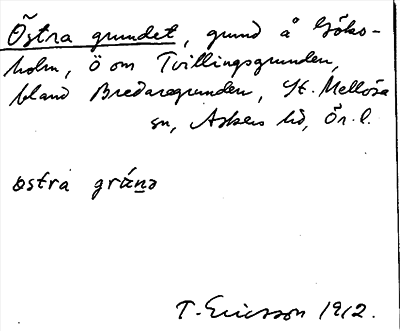 Östra grundet, grund å Göks-
holm, ö om Tvillingsgrunden,
bland Bredaregrunden, St. Mellösa
sn, Askers hd, Ör. l.
østra grúnə
T. Ericsson 1912.